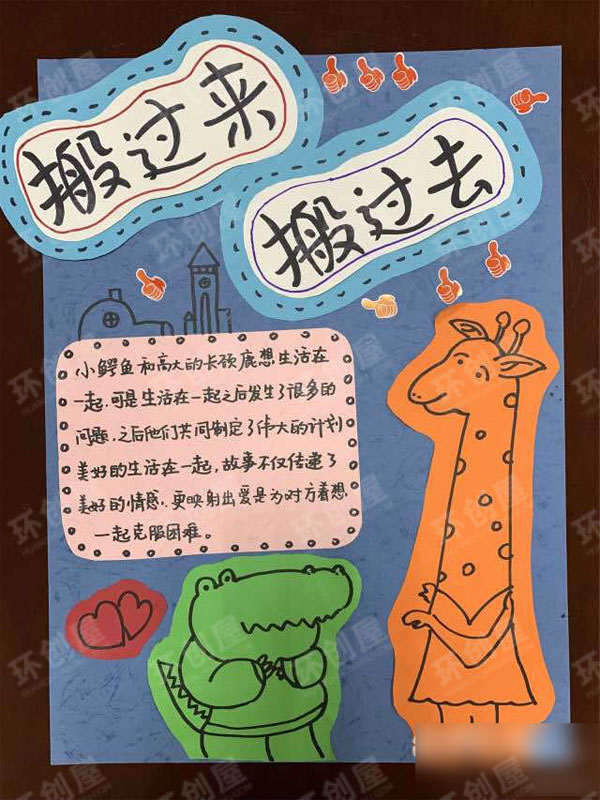 搬过来
搬过去
小鳄鱼和高大的长颈鹿想生活在
一起,可是生活在一起之后发生了很多的
问题,之后他们共同制定了伟大的计划
美好的生活在一起,故事不仅传递了
美好的情感,更映射出爱是为对方着想,
一起克服困难。
环创屋